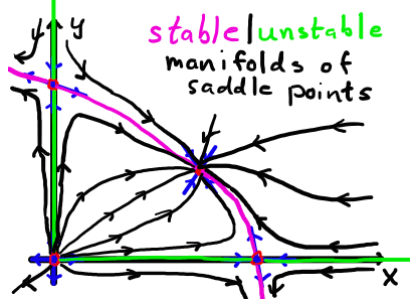 y
stable|unstable
manifolds of
saddle points
x